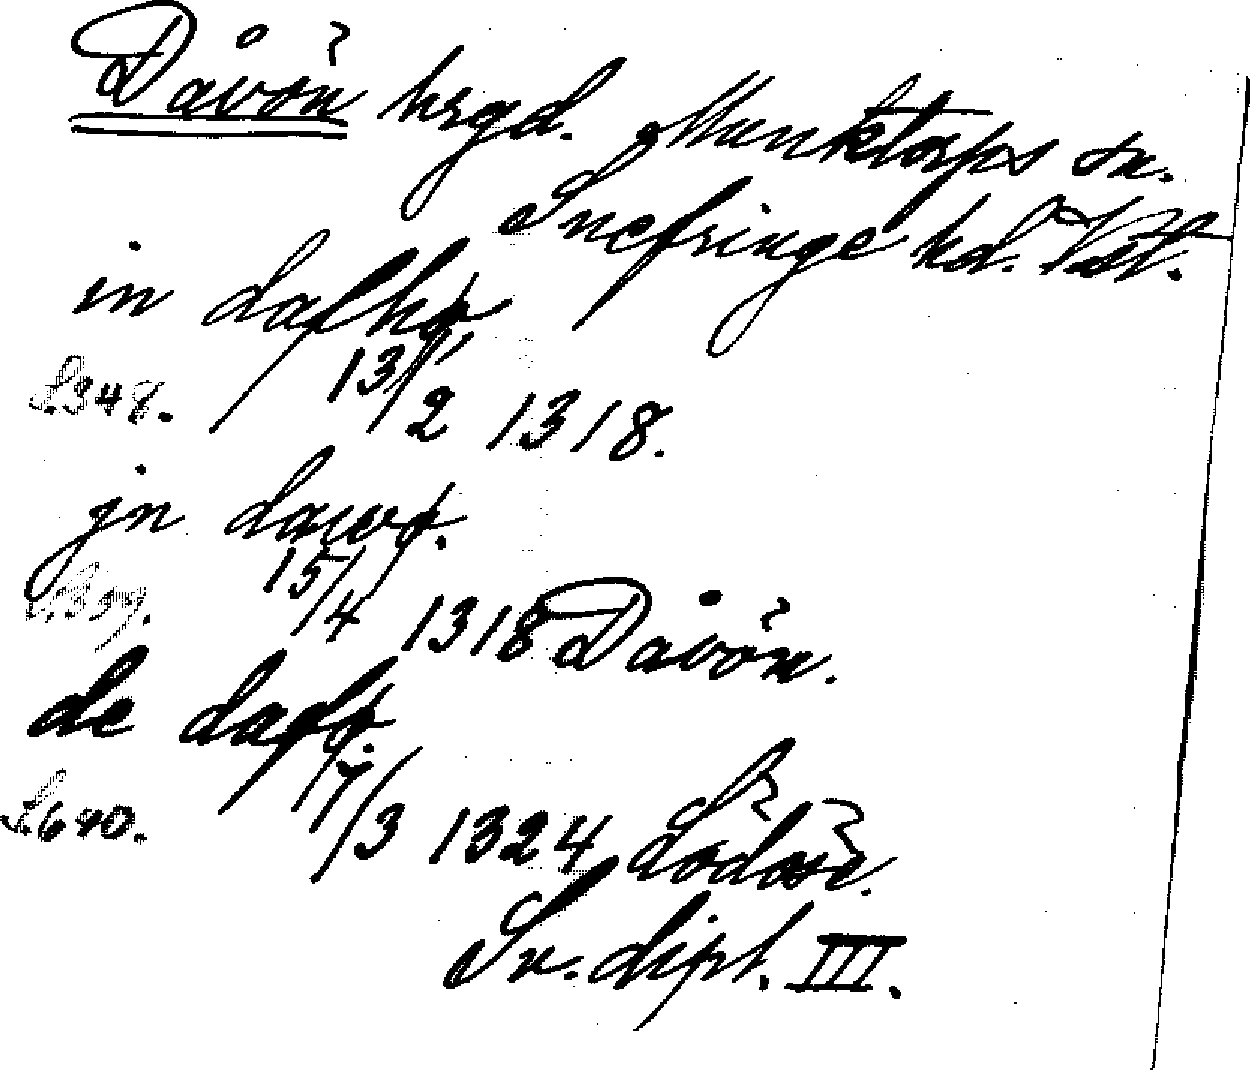 Dåvön hrgd. Munktorps sn.
Snefringe hd. Vstl.
in dafhø,
S. 348. 13/2 1318.
jn dawø.
S. 359. 15/4 1318 Dåvön.
de dafø.
S. 640. 17/3 1324 Lödöse.
Sv. dipl. III.